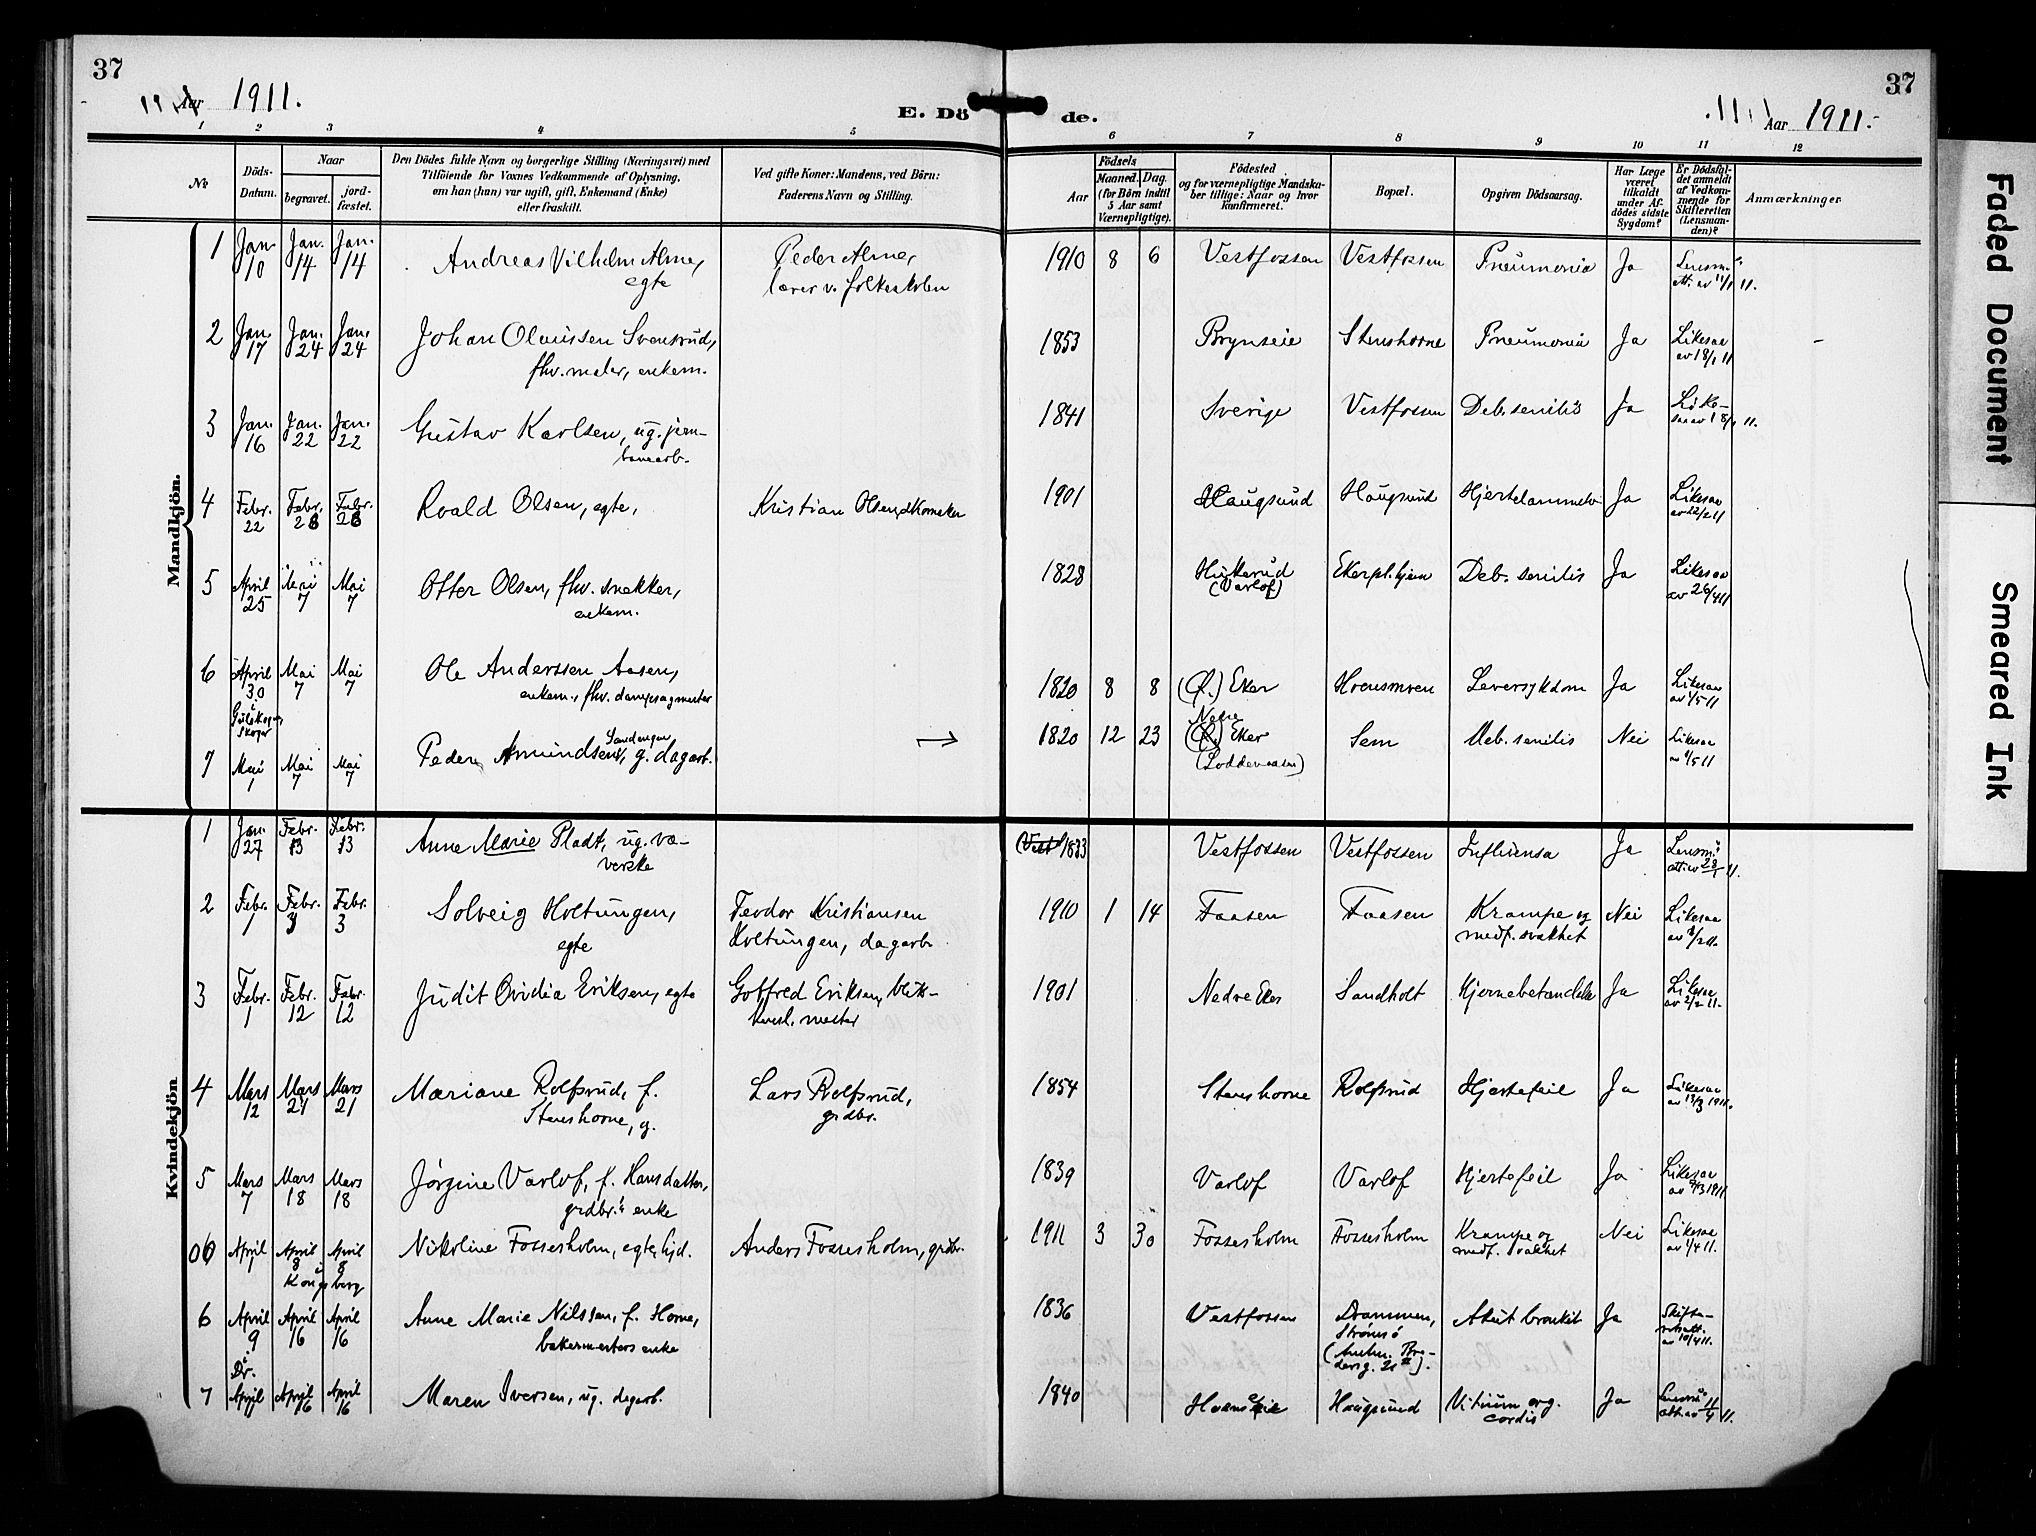 37
37
Aar 1911.
E. Dö de.
Aar 1911.
1 2 3 4 5 6 7 8 9 10 11 12
No
Döds-Datum.
Naar
begravet.
jord-fæstet.
Den Dödes fulde Navn og borgerlige Stilling (Næringsvei) med
Tilföiende for Voxnes Vedkommende af Oplysning,
om han (hun) var ugift, gift, Enkemand (Enke)
eller fraskilt.
Ved gifte Koner: Mandens, ved Börn:
Faderens Navn og Stilling.
Födsels
Aar Maaned. Dag.
(for Börn indtil
5 Aar samt
Værnepligtige).
Födested
og for værnepligtige Mandska-
ber tillige: Naar og hvor
konfirmeret.
Bopæl.
Opgiven Dödsaarsag.
Har Læge
været
tilkaldt
under Af-
dödes sidste
Sygdom?
Er Dödsfal-
det anmeldt
af Vedkom-
mende for
Skifteretten
(Lensman-
den)?
Anmærkninger
Mandkjön.
1 Jan. 10 Jan. 14 Jan. 14 Andreas Vilhelm Alme, egte Peder Alme, lærer v. folkeskolen 1910 8 6 Vestfossen Vestfossen Pneumonia Ja Lensm. att. av 11/1 11.
2 Jan. 17 Jan. 24 Jan. 24 Johan Olaussen Svensrud, fhv. maler, enkem. 1853 Brynseie Stenshorne Pneumonia Ja Likesaa av 18/1 11
3 Jan. 16 Jan. 22 Jan. 22 Gustav Karlsen, ug. jern-banearb. 1841 Sverige Vestfossen Deb. senilis Ja Likesaa av 18/1 11.
4 Febr. 22 Febr. 28 Febr. 28 Roald Olsen, egte, Kristian Olsen, skomaker 1901 Haugsund Haugsund Hjertelammelse Ja Likesaa av 22/2 11
5 April 25 Mai 7 Mai 7 Otter Olsen, fhv. snekker, enkem. 1828 Hukerud (Varlof) Ekerpl. hjem Deb. senilis Ja Likesaa av 26/4 11
6 April 30 i Gulskogen, Skoger Mai 7 Mai 7 Ole Anderssen Aasen, enkem., fhv. dampsagmester 1820 8 8 (Ø.) Eker Hoensmoen Leversykdom Ja Likesaa av 1/5 11
7 Mai 1 Mai 7 Mai 7 Peder Amundsen Sandengen, g. dagarb. 1820 12 23 Nedre (Ø.) Eker (Loddemoen) Sem Deb. senilis Nei Likesaa av 1/5 11
Kvindekjön
1 Jan. 27 Febr. 13 Febr. 13 Anne Marie Pladt, ug. væ-verske (Vest 1833 Vestfossen Vestfossen Influensa Ja Lensm. att. av 28/1 11.
2 Febr. 1 Febr. 3 Febr. 3 Solveig Holtungen, egte Teodor Kristiansen Holtungen, dagarb. 1910 1 14 Faasen Faasen Krampe og medf. svakhet Nei Likesaa av 2/2 11.
3 Febr. 1 Febr. 12 Febr. 12 Judit Ovidia Eriksen, egte Gotfred Eriksen, blik-kensl. mester 1901 Nedre Eker Sandholt Hjernebetændelse Ja Likesaa av 2/2 11.
4 Mars 12 Mars 21 Mars 21 Mariane Rolfsrud, f. Stenshorne, g. Lars Rolfsrud, grdbr. 1854 Stenshorne Rolfsrud Hjertefeil Ja Likesaa av 13/3 1911.
5 Mars 7 Mars 18 Mars 18 Jørgine Varlof, f. Hansdatter, grdbr.s enke 1839 Varlof Varlof Hjertefeil Ja Likesaa av 9/3 1911
06 April 1 April 8 April 8 i Kongsberg Nikoline Fossesholm, egte, hjd. Anders Fossesholm, grdbr. 1911 3 30 Fossesholm Fossesholm Krampe og medf. svakhet Nei Likesaa av 1/4 11.
6 April 9 i Dr. April 16 April 16 Anne Marie Nilssen, f. Horne, bakermesters enke 1836 Vestfossen Drammen, Strømsø (Anthn. Bredersg. 21 II). Akut bronkit Ja Skifte-rettsatt. av 10/4 11.
7 April 11 April 16 April 16 Maren Iversen, ug. dagarb. 1840 Hoenseie Haugsund Vitium org. cordis Ja Lensm. att. av 11/4 11.
Faded Document
Smeared Ink